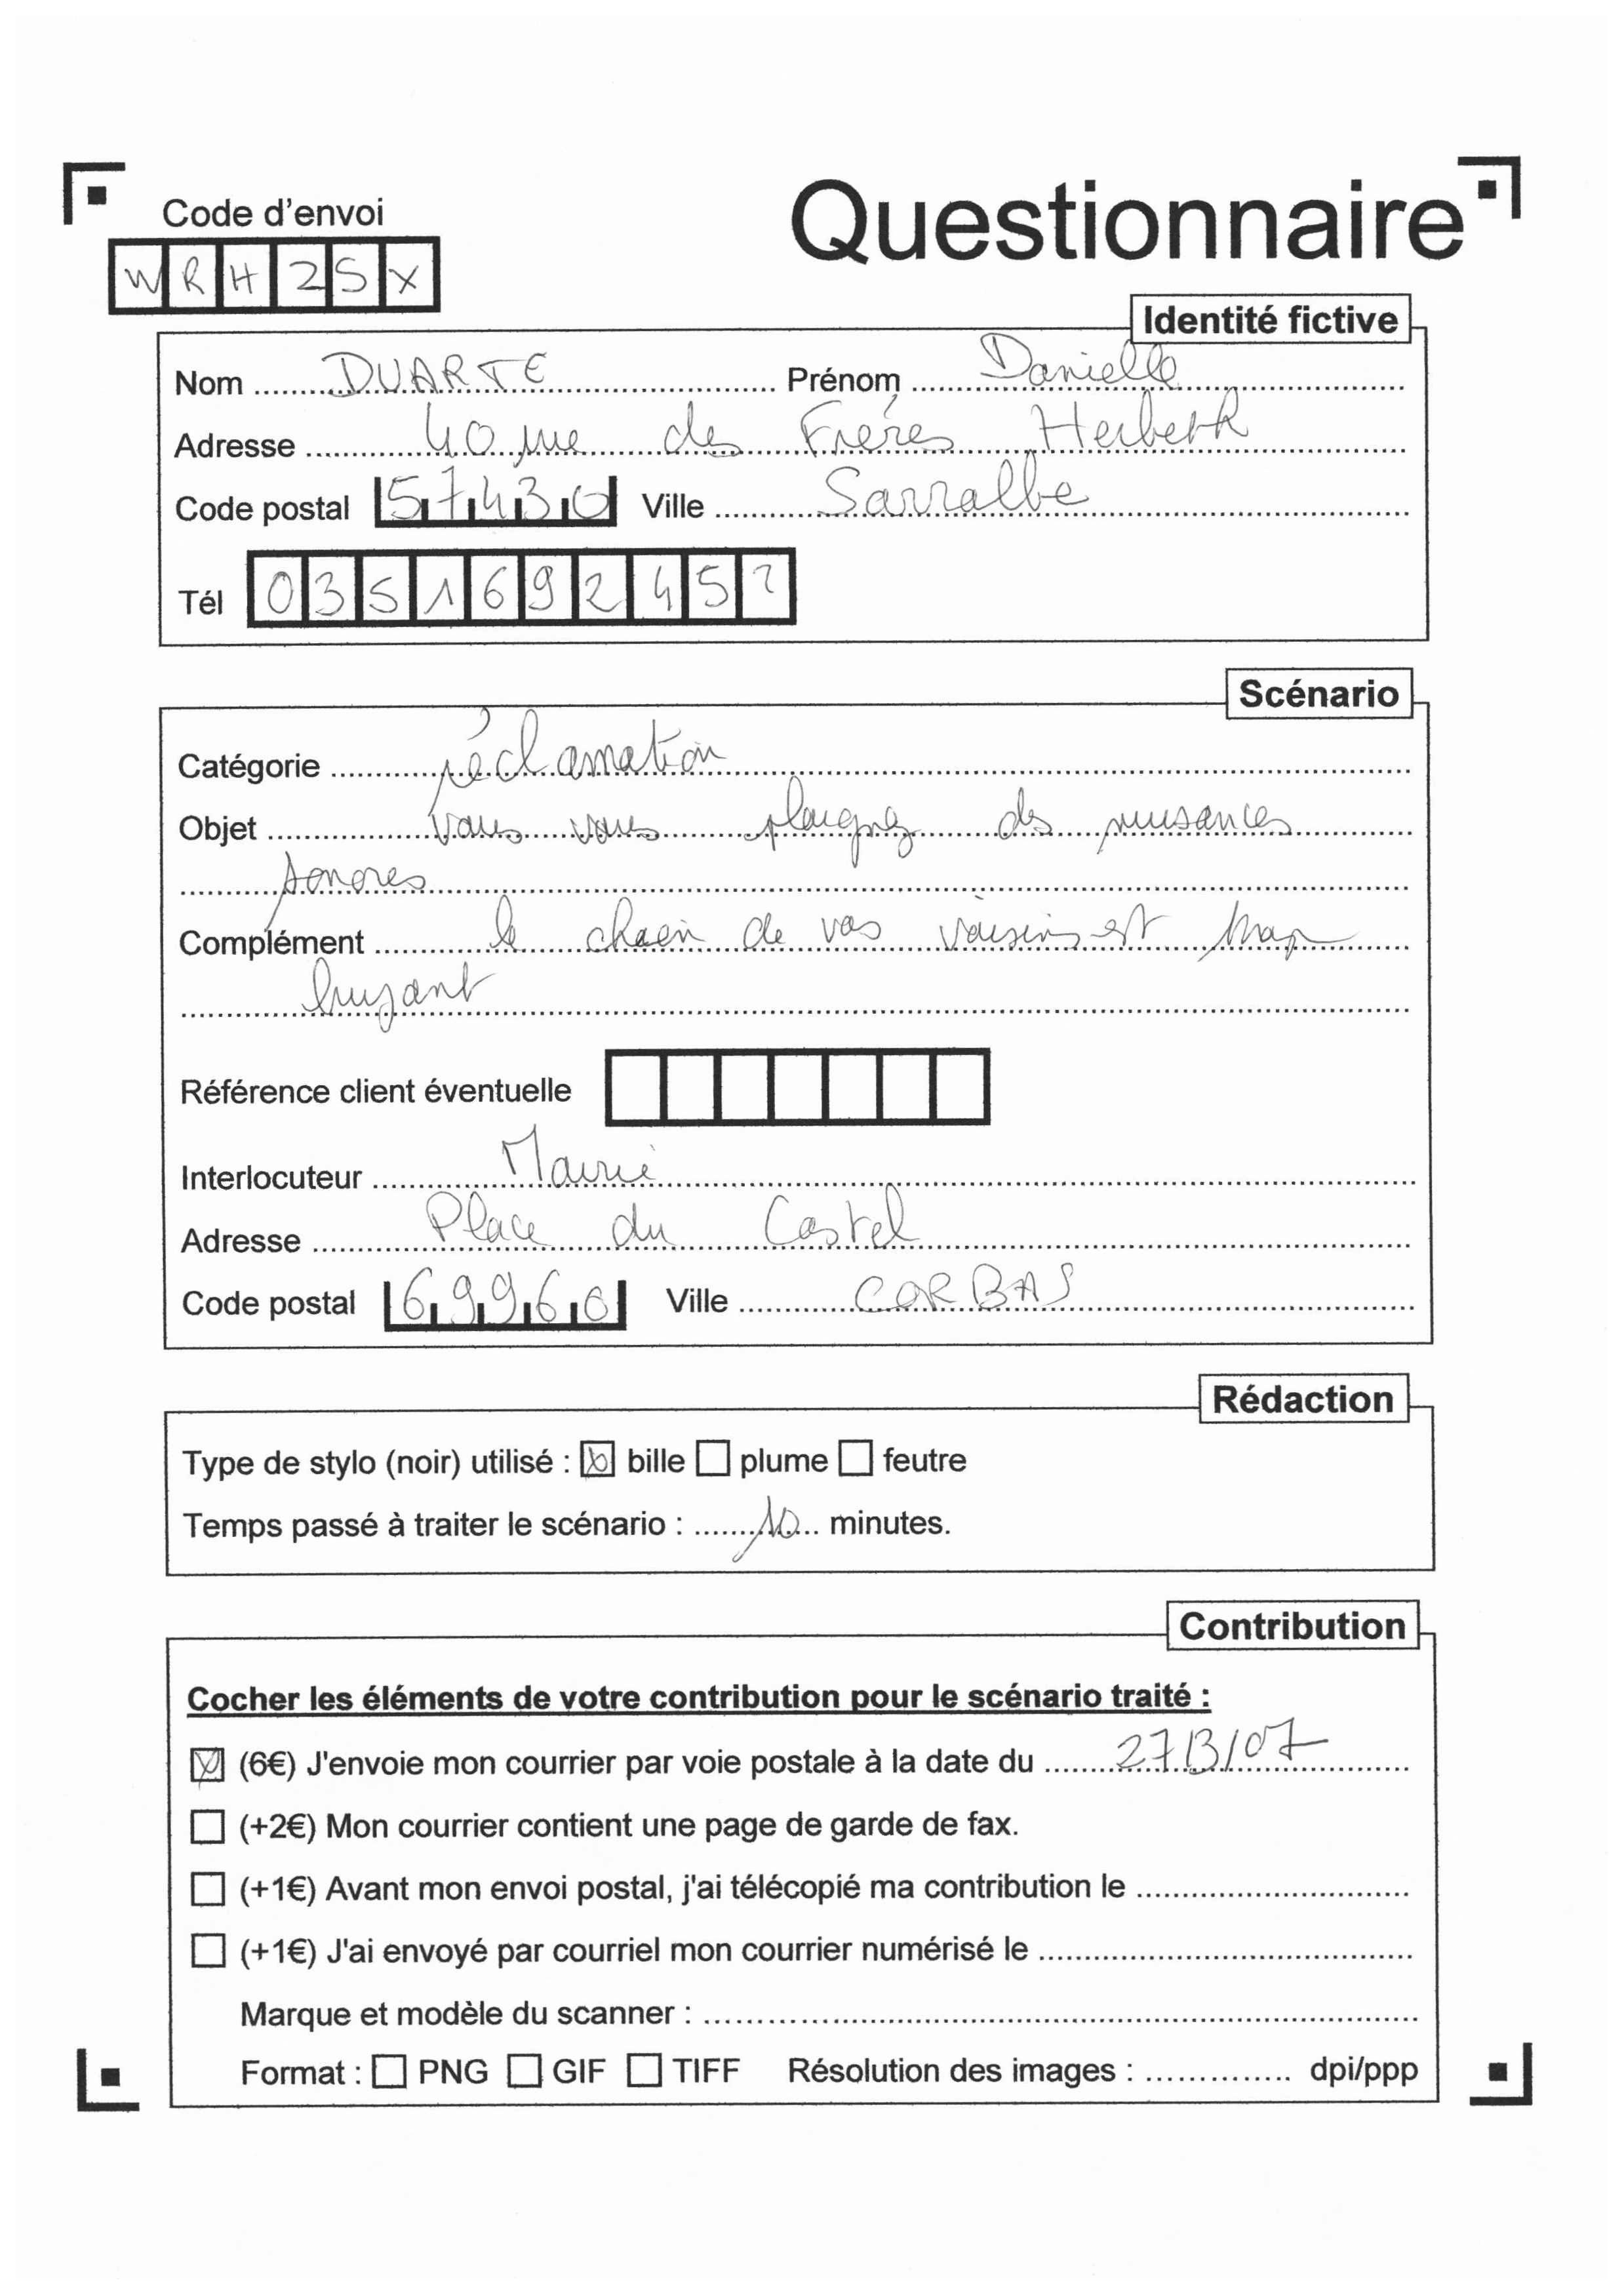 Code d'envoi
Questionnaire
WRH25X
Identité fictive
Nom DUARTE Prénom Danielle
Adresse 40 rue des Frères Herbeth
Code postal 57430 Ville Sarralbe
Tél 035169245
Scénario
Catégorie réclamation
Objet Vous vous plaignez des nuisances
sonores
Complément le chien de vos voisins est trop
bruyant
Référence client éventuelle
Interlocuteur Mairie
Adresse Place du Castel
Code postal 69960 Ville CORBAS
Rédaction
Type de stylo (noir) utilisé : bille plume feutre
Temps passé à traiter le scénario : 10 minutes.
Contribution
Cocher les éléments de votre contribution pour le scénario traité :
(6€) J'envoie mon courrier par voie postale à la date du 27/3/07
(+2€) Mon courrier contient une page de garde de fax.
(+1€) Avant mon envoi postal, j'ai télécopié ma contribution le
(+1€) J'ai envoyé par courriel mon courrier numérisé le
Marque et modèle du scanner :
Format : PNG GIF TIFF Résolution des images : dpi/ppp